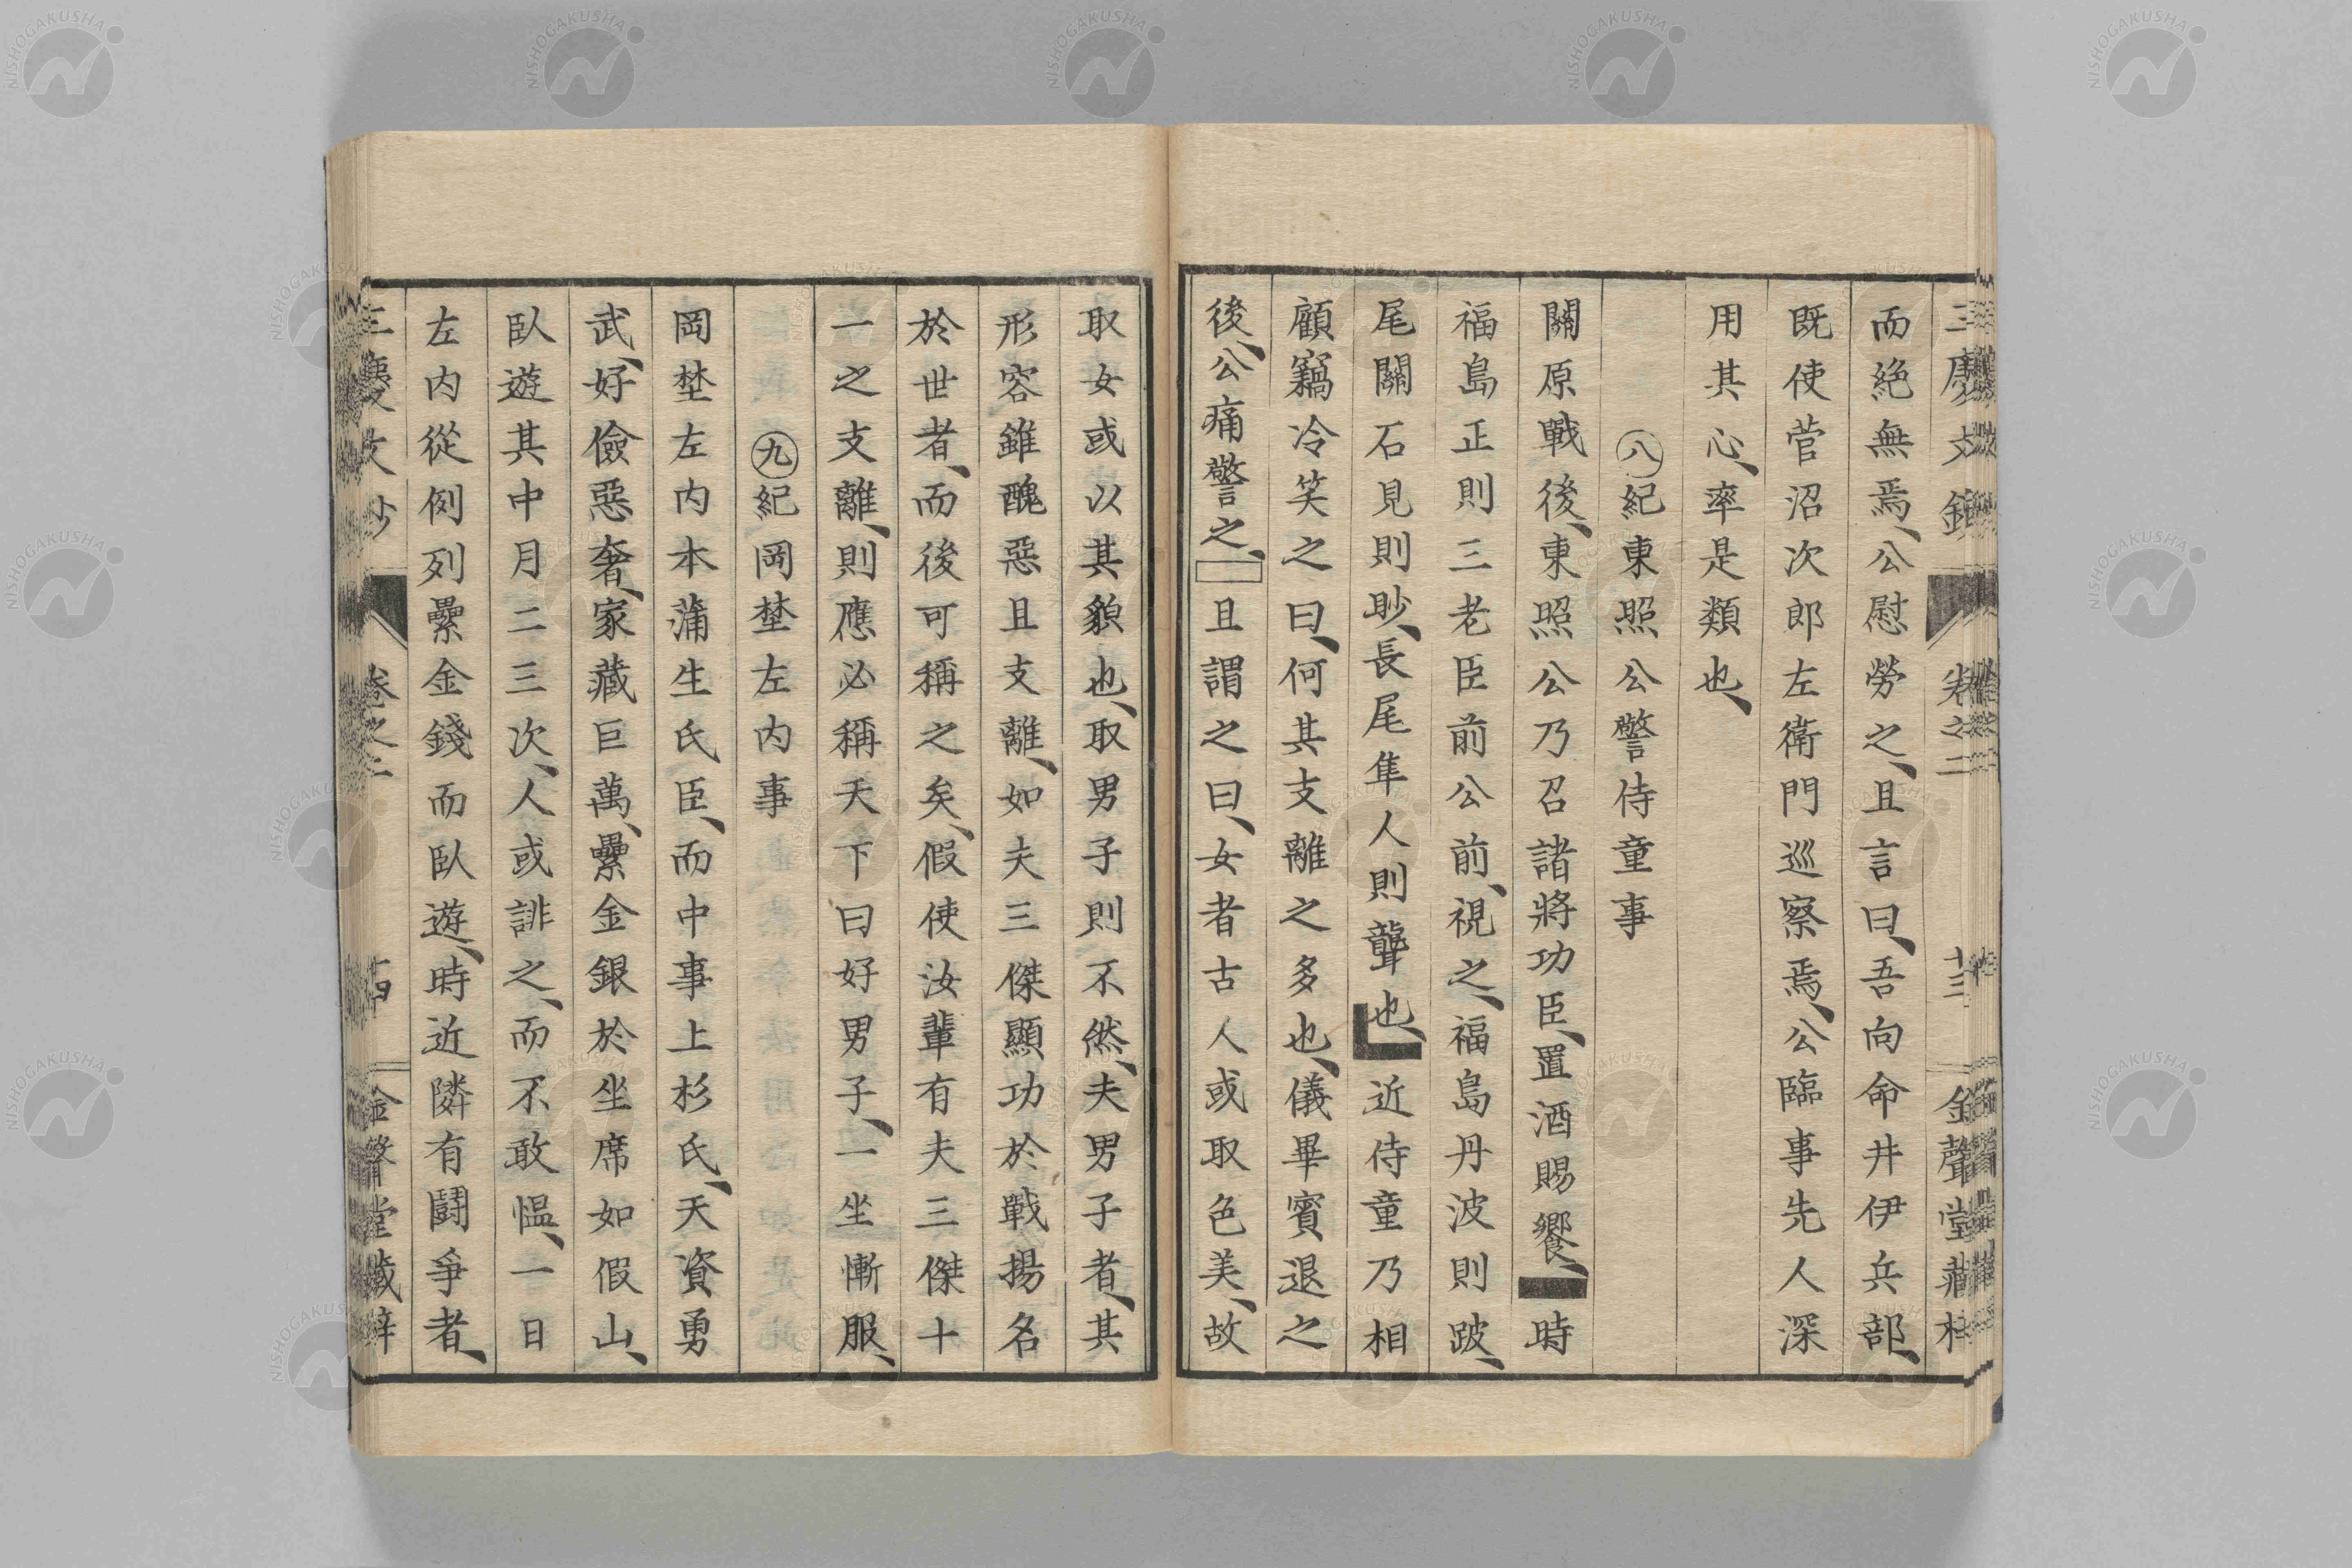 而絕無焉、公慰勞之、且言曰、吾向命井伊兵部、
既使菅沼次郎左衛門巡察焉、公臨事先人深
用其心、率是類也、
㊇紀東照公警侍童事
關原戰後、東照公乃召諸將功臣、置酒賜饗、時
福島正則三老臣前公前、視之、福島丹波則跛、
尾關石見則眇、長尾隼人則聾也、近侍童乃相
顧竊冷笑之曰、何其支離之多也、儀畢賓退之
後、公痛警之、且謂之曰、女者古人或取色美、故
取女或以其貌也、取男子則不然、夫男子者、其
形容雖醜惡且支離、如夫三傑顯功於戰揚名
於世者、而後可稱之矣、假使汝輩有夫三傑十
一之支離、則應必稱天下曰好男子、一坐慚服、
㊈紀岡埜左内事
岡埜左内本蒲生氏臣、而中事上杉氏、天資勇
武、好儉惡奢、家藏巨萬、纍金銀於坐席如假山、
臥遊其中月二三次、人或誹之、而不敢慍、一日
左内從例列纍金錢而臥遊、時近隣有鬪爭者、
卷之二
十四
金聲堂藏梓